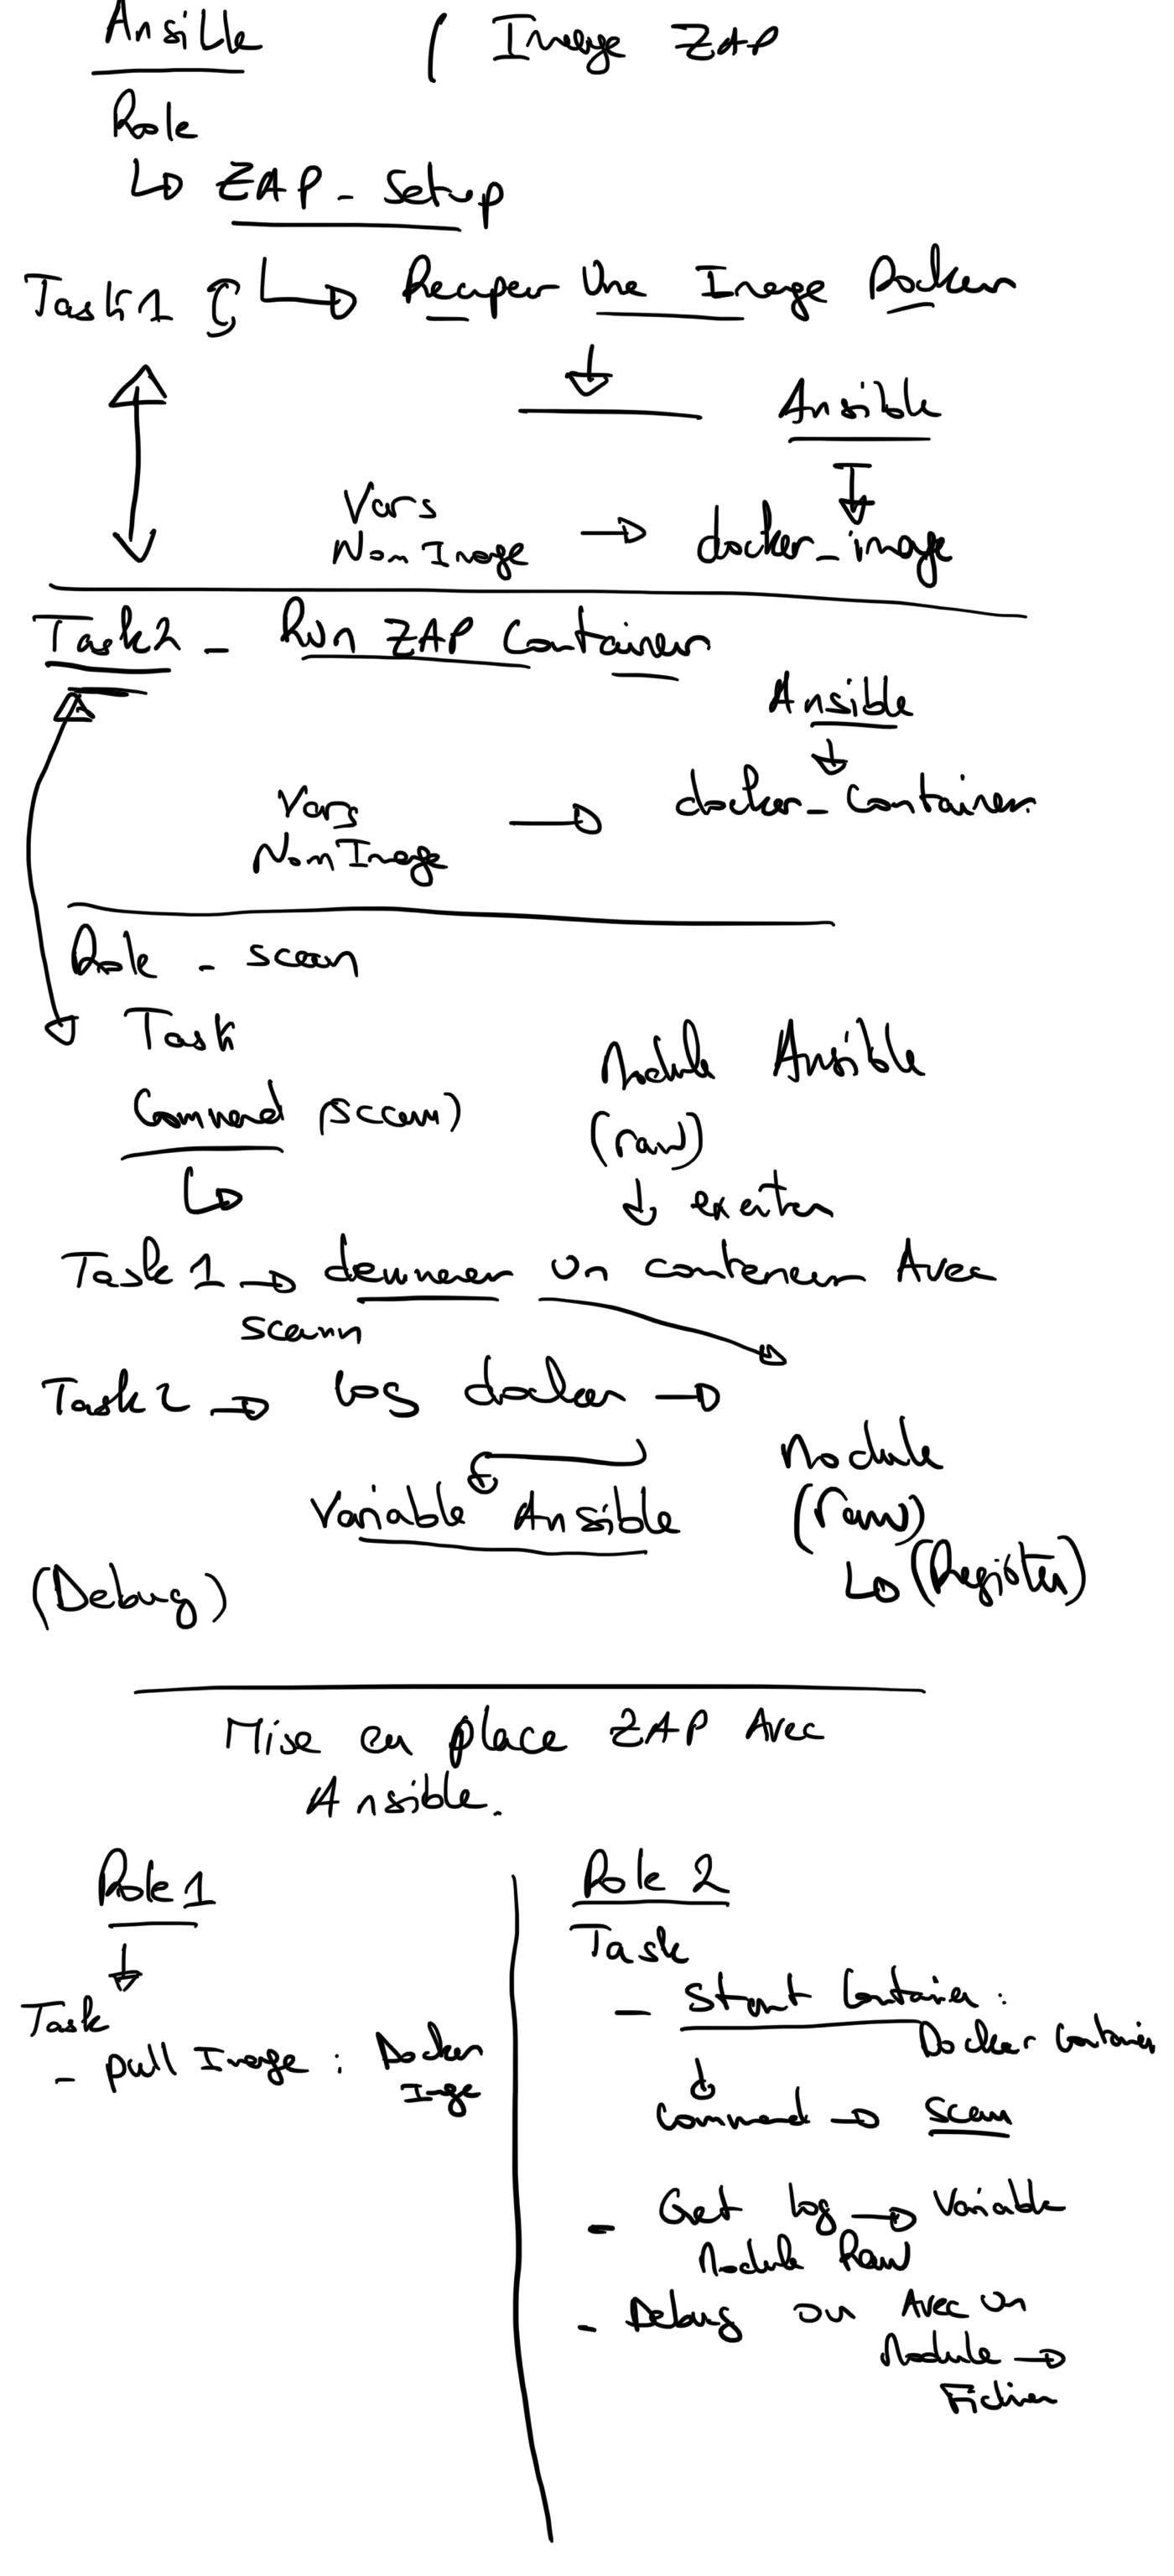 Ansible ( Image ZAP
Role
↳ ZAP - Setup
Task 1 ↳ Recuper Une Image Docker
Ansible
Vars
Nom Image → docker_image
Task 2 - Run ZAP Container
Ansible
Vars docker_container
Nom Image →
Role - scan
Task
Module Ansible
Command (scan)
(raw)
↓ executer
Task 1 → demarrer un conteneur Avec
scann
Task 2 → log docker →
Module
Variable Ansible (raw)
↳ (Register)
(Debug)
Mise en place ZAP Avec
Ansible.
Role 1
↓
Task
- pull Image : Docker
Image
Role 2
Task
- Start Container :
Docker Container
↓
Command → scan
- Get log → Variable
Module Raw
- Debug ou Avec un
Module →
Fichier